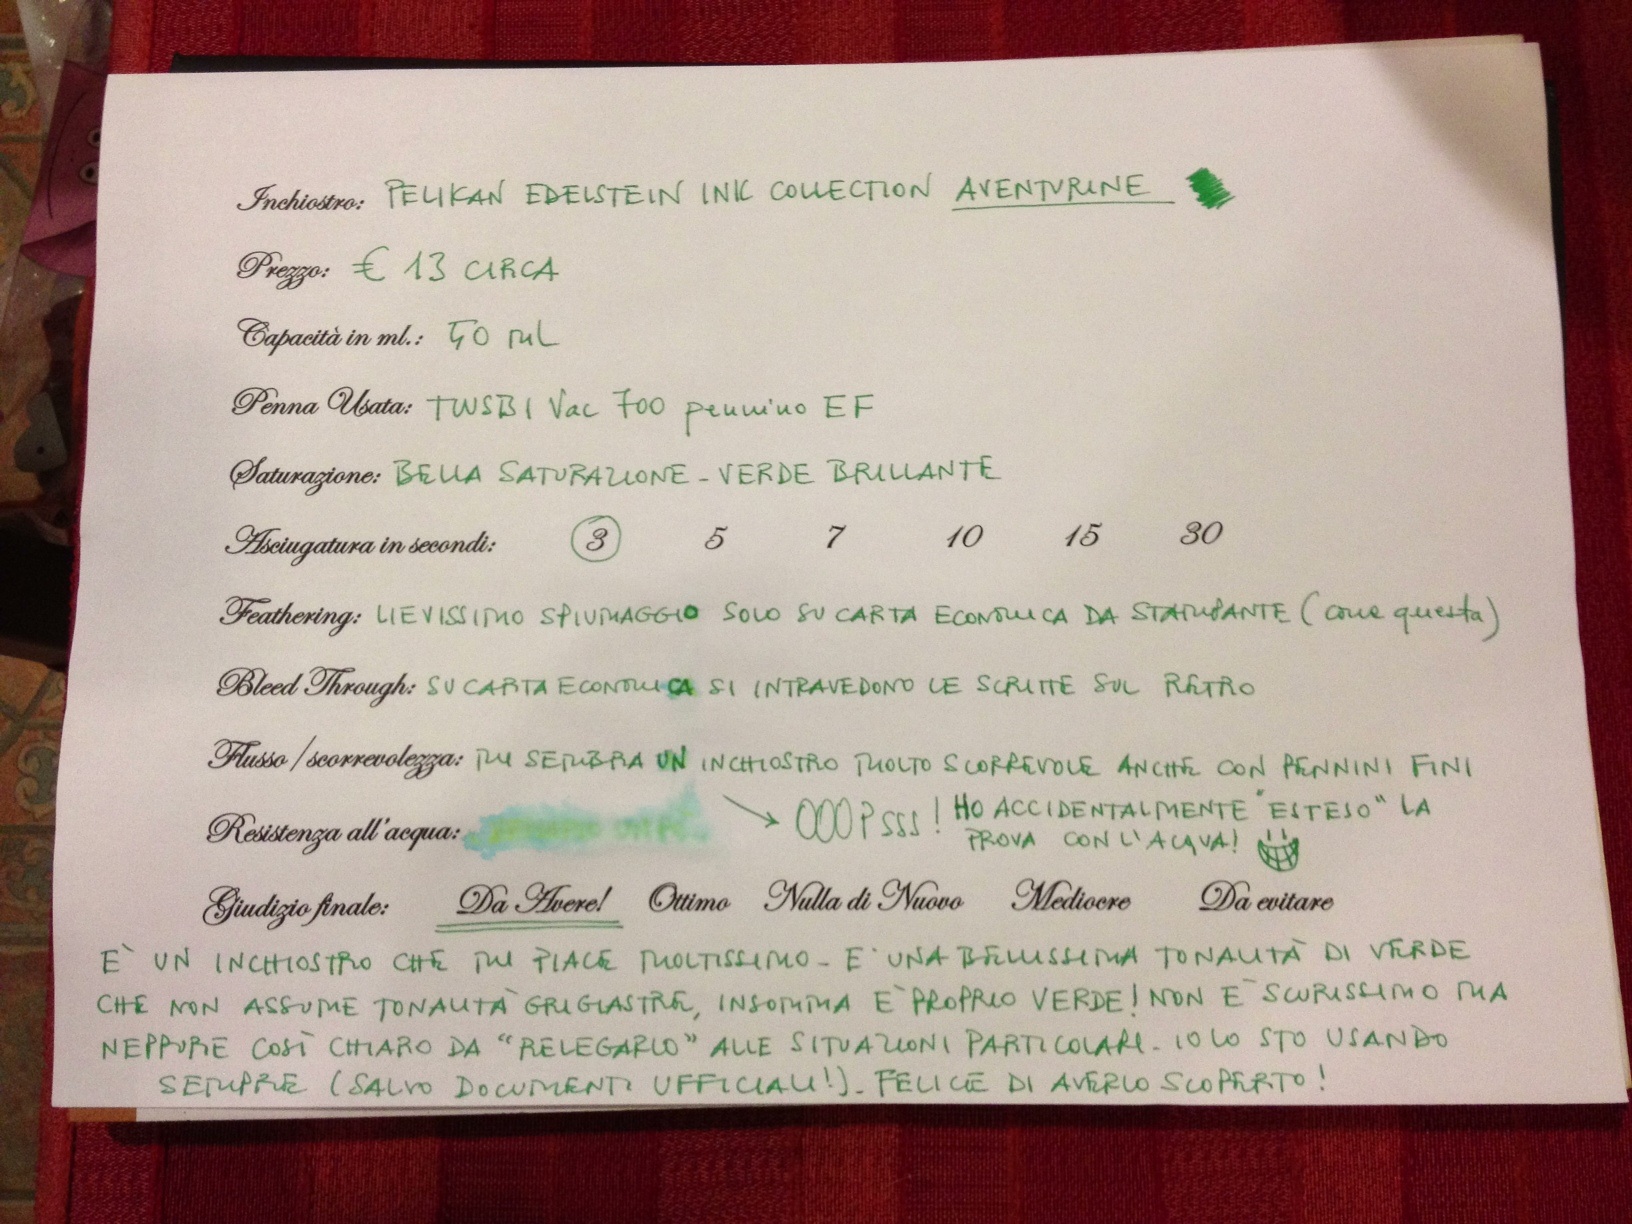 Inchiostro: PELIKAN EDELSTEIN INK COLLECTION AVENTURINE
Prezzo: € 13 CIRCA
Capacità in ml.: 50 ML
Penna Usata: TWSBI Vac 700 pennino EF
Saturazione: BELLA SATURAZIONE - VERDE BRILLANTE
Asciugatura in secondi: 3 5 7 10 15 30
Feathering: LIEVISSIMO SPIUMAGGIO SOLO SU CARTA ECONOMICA DA STAMPANTE (come questa)
Bleed Through: SU CARTA ECONOMICA SI INTRAVEDONO LE SCRITTE SUL RETRO
Flusso/scorrevolezza: MI SEMBRA UN INCHIOSTRO MOLTO SCORREVOLE ANCHE CON PENNINI FINI
Resistenza all'acqua: → OOOPsss! HO ACCIDENTALMENTE "ESTESO" LA
PROVA CON L'ACQUA!
Giudizio finale: Da Avere! Ottimo Nulla di Nuovo Mediocre Da evitare
E' UN INCHIOSTRO CHE MI PIACE MOLTISSIMO - E' UNA BELLISSIMA TONALITÀ DI VERDE
CHE NON ASSUME TONALITÀ GRIGIASTRE, INSOMMA E' PROPRIO VERDE! NON E' SCURISSIMO MA
NEPPURE COSÌ CHIARO DA "RELEGARLO" ALLE SITUAZIONI PARTICOLARI - IO LO STO USANDO
SEMPRE (SALVO DOCUMENTI UFFICIALI!) - FELICE DI AVERLO SCOPERTO!